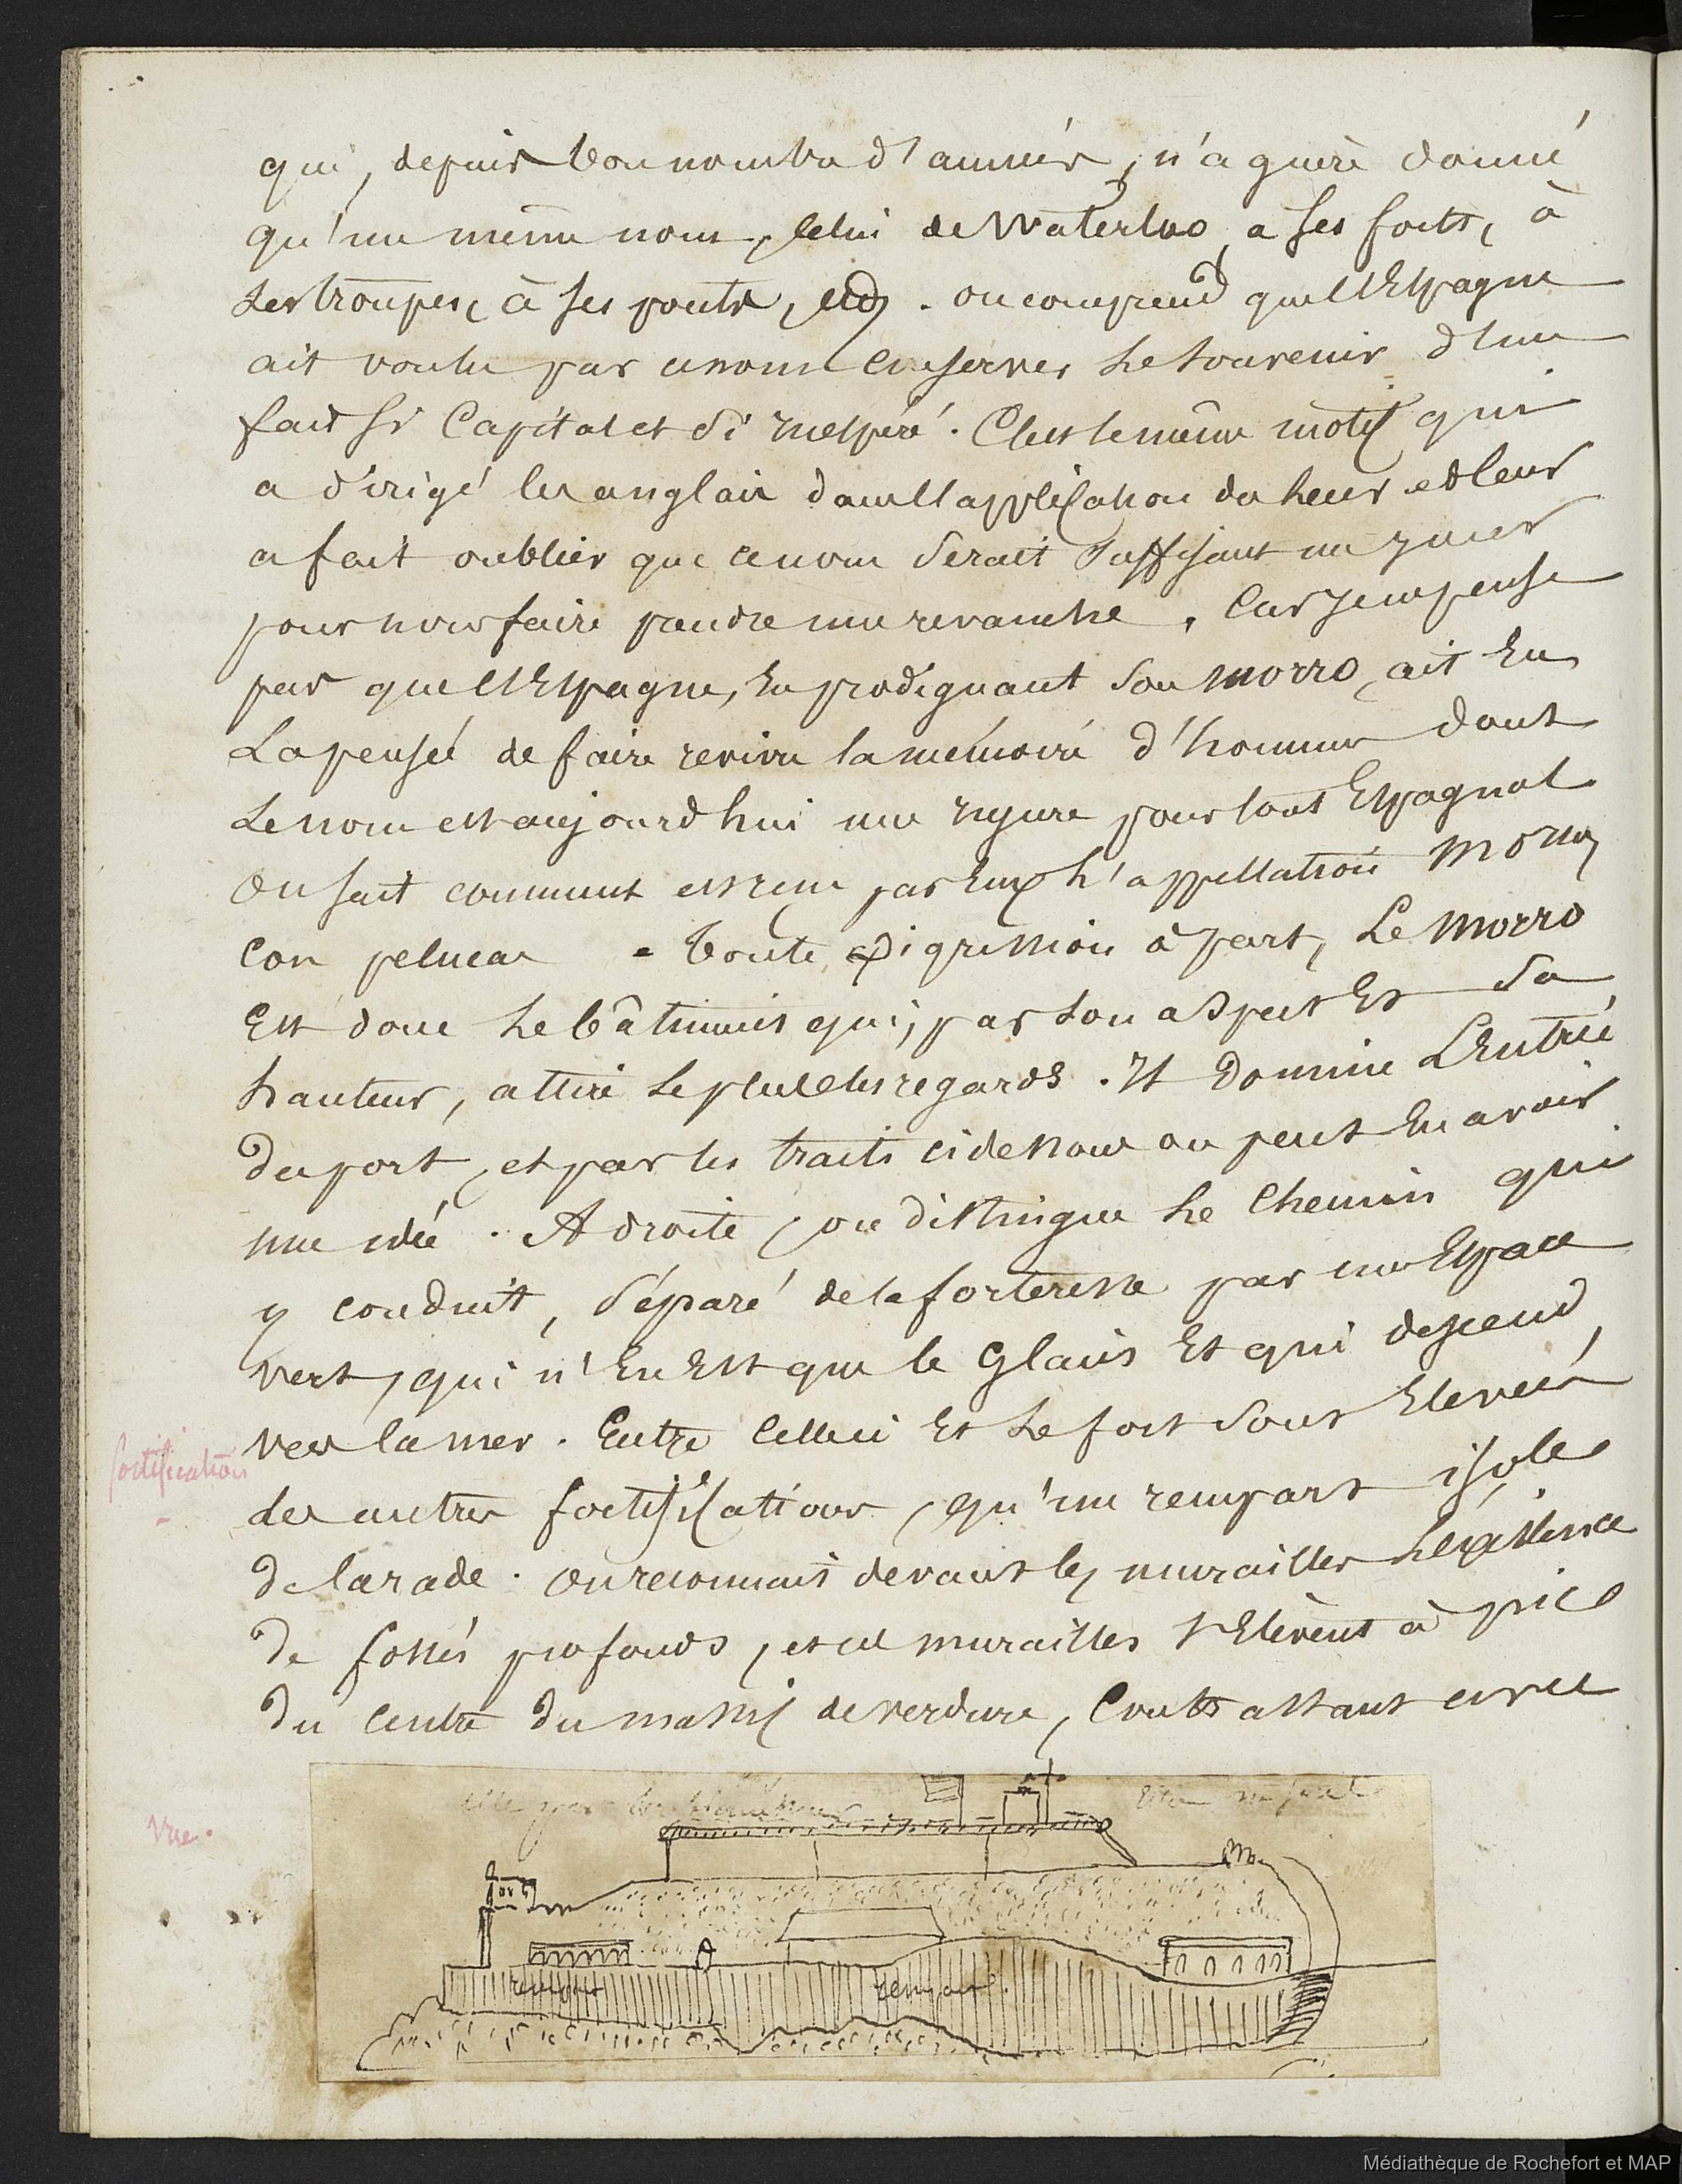 qui, depuis bon nombre d'années, n'a guère donné
qu'un même nom, celui de Waterloo, a ses forts, à
ses troupes, à ses ponts, etc. on comprend que l'Espagne
ait voulu par ce nom conserver le souvenir d'un
fait si capital et si inespéré. C'est le même motif qui
a dirigé les anglais dans l'application du leur et leur
a fait oublier que ce nom serait suffisant un jour
pour nous faire prendre une revanche. Car je ne pense
pas que l'Espagne, en prodiguant son morro, ait eu
la pensée de faire revivre la mémoire d'hommes dont
le nom est aujourd'hui une injure pour tout Espagnol
on sait comment est reçue par eux l'appellation
con pelucas. Toute digression à part, Le Morro
Est donc le bâtiment qui, par son aspect Et sa
hauteur, attire le plus les regards. Il domine L'Entrée
du port, et par les traits cidessous on peut En avoir
une idée. A droite, on distingue le chemin qui
y conduit, séparé de la forteresse par un Espace
vert, qui n'En Est que le Glacis Et qui descend
vers la mer. Entre celleci Et le fort sont Elevées
des autres fortifications, qu'un rempart isole
fortification
de la rade. on reconnait devant les murailles l'existence
de fossés profonds, et ces murailles s'Elèvent à pic
du centre du massif de verdure, contrastant avec
Vue.
rempart
rempart
Médiathèque de Rochefort et MAP